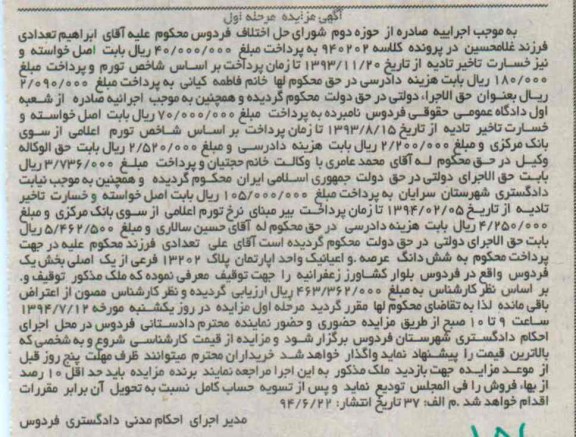 آگهی مزایده مرحله اول
به موجب اجراییه صادره از حوزه دوم شورای حل اختلاف فردوس محکوم علیه آقای ابراهیم تعدادی
فرزند غلامحسین در پرونده کلاسه ۹۴۰۲۰۲ به پرداخت مبلغ ۴۰/۰۰۰/۰۰۰ ریال بابت اصل خواسته و
نیز خسارت تاخیر تادیه از تاریخ ۱۳۹۳/۱۱/۲۰ تا زمان پرداخت بر اساس شاخص تورم و پرداخت مبلغ
۱۸۰/۰۰۰ ریال بابت هزینه دادرسی در حق محکوم لها خانم فاطمه کیانی به پرداخت مبلغ ۲/۰۹۰/۰۰۰
ریال بعنوان حق الاجرا، دولتی در حق دولت محکوم گردیده و همچنین به موجب اجرائیه صادره از شعبه
اول دادگاه عمومی حقوقی فردوس نامبرده به پرداخت مبلغ ۷۰/۰۰۰/۰۰۰ ریال بابت اصل خواسته و
خسارت تاخیر تادیه از تاریخ ۱۳۹۳/۸/۱۵ تا زمان پرداخت بر اساس شاخص تورم اعلامی از سوی
بانک مرکزی و مبلغ ۲/۲۰۰/۰۰۰ ریال بابت هزینه دادرسی و مبلغ ۲/۵۲۰/۰۰۰ ریال بابت حق الوکاله
وکیل در حق محکوم له آقای محمد عامری با وکالت خانم حجتیان و پرداخت مبلغ ۳/۷۳۶/۰۰۰ ریال
بابت حق الاجرای دولتی در حق دولت جمهوری اسلامی ایران محکوم گردیده و همچنین به موجب نیابت
دادگستری شهرستان سرایان به پرداخت مبلغ ۱۰۵/۰۰۰/۰۰۰ ریال بابت اصل خواسته و خسارت تاخیر
تادیه از تاریخ ۱۳۹۴/۰۲/۰۵ تا زمان پرداخت بیر مبنای نرخ تورم اعلامی از سوی بانک مرکزی و مبلغ
۴/۲۵۰/۰۰۰ ریال بابت هزینه دادرسی در حق محکوم له آقای حسین سالاری و مبلغ ۵/۴۶۲/۵۰۰ ریال
بابت حق الاجرای دولتی در حق دولت محکوم گردیده است آقای علی تعدادی فرزند محکوم علیه در جهت
پرداخت محکوم به شش دانگ عرصه و اعیانیک واحد اپارتمان پلاک ۱۳۲۰۲ فرعی از یک اصلی بخش یک
فردوس واقع در فردوس بلوار کشاورز زعفرانیه را جهت توقیف معرفی نموده که ملک مذکور توقیف و.
بر اساس نظر کارشناس به مبلغ ۴۶۳/۳۶۲/۰۰۰ ریال ارزیابی گردیده و نظر کارشناس مصون از اعتراض
باقی مانده لذا به تقاضای محکوم لها مقرر گردید مرحله اول مزایده در روز یکشنبه مورخه ۱۳۹۴/۷/۱۲
ساعت ۹ تا ۱۰ صبح از طریق مزایده حضوری و حضور نماینده محترم دادستانی فردوس در محل اجرای
احکام دادگستری شهرستان فردوس برگزار شود و مزایده از قیمت کارشناسی شروع و به شخصی که
بالاترین قیمت را پیشنهاد نماید واگذار خواهد شد خریداران محترم میتوانند ظرف مهلت پنج روز قبل
از موعد مزایده جهت بازدید ملک مذکور به این اجرا مراجعه نمایند برنده مزایده باید حد اقل ۱۰ رصد
از بها، فروش را فی المجلس تودیع نماید و پس از تسویه حساب کامل نسبت به تحویل آن برابر مقررات
اقدام خواهد شد .م الف: ۳۷ تاریخ انتشار: ۹۴/۶/۲۲
مدیر اجرای احکام مدنی دادگستری فردوس